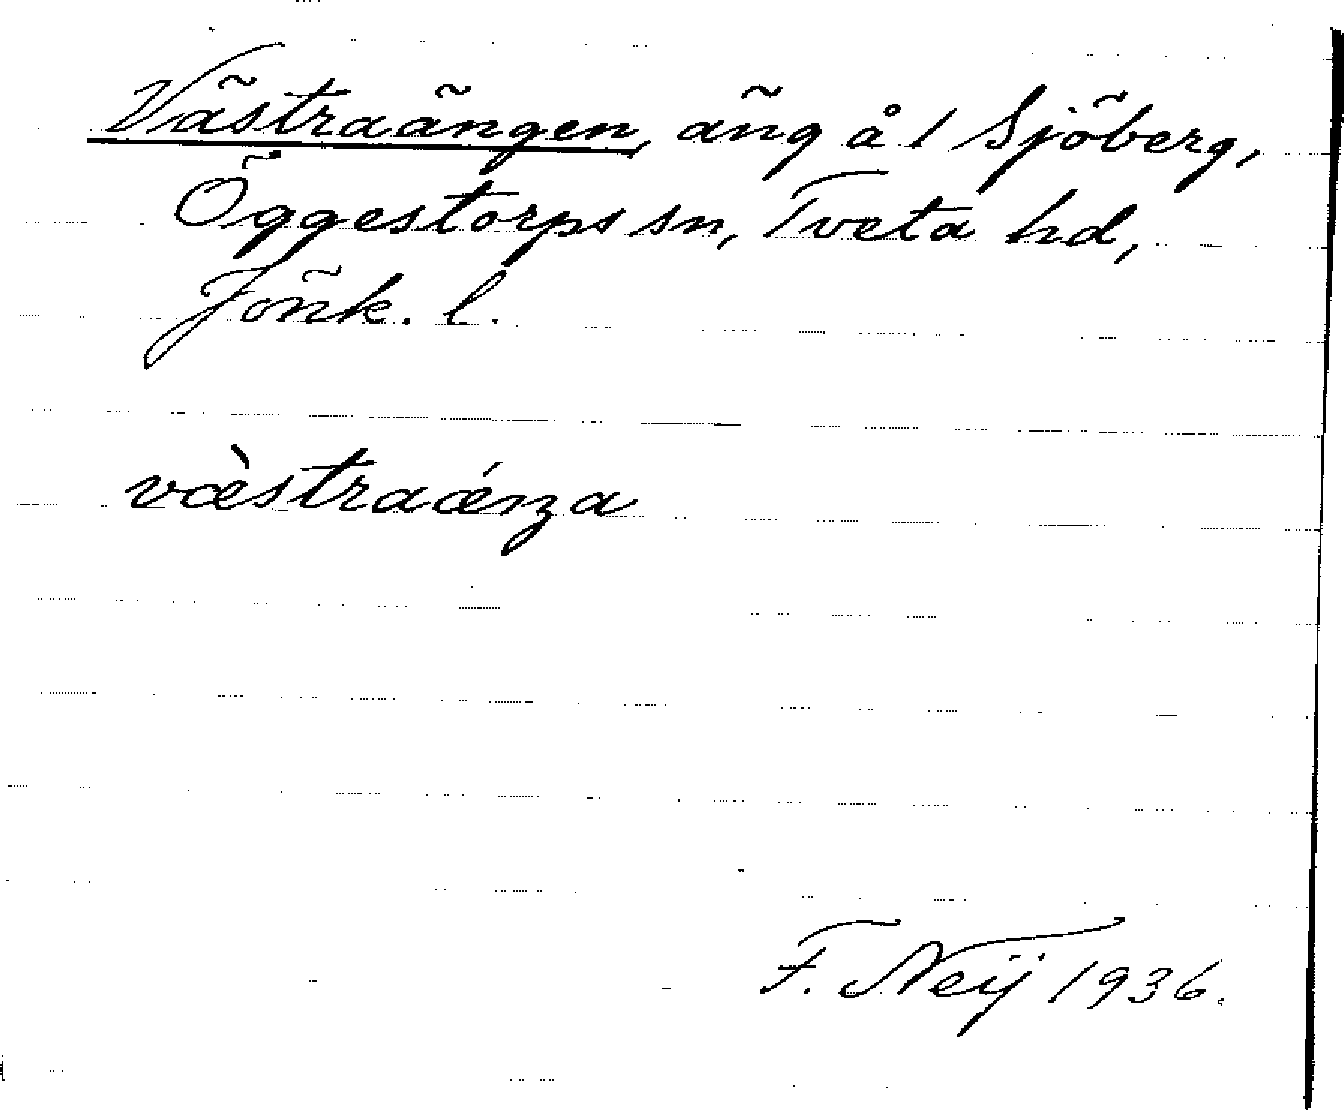 Västraängen, äng å 1 Sjöberg,
Öggestorps sn, Tveta hd,
Jönk. l.
væ̀straǽnᵹa
F. Neij 1936.